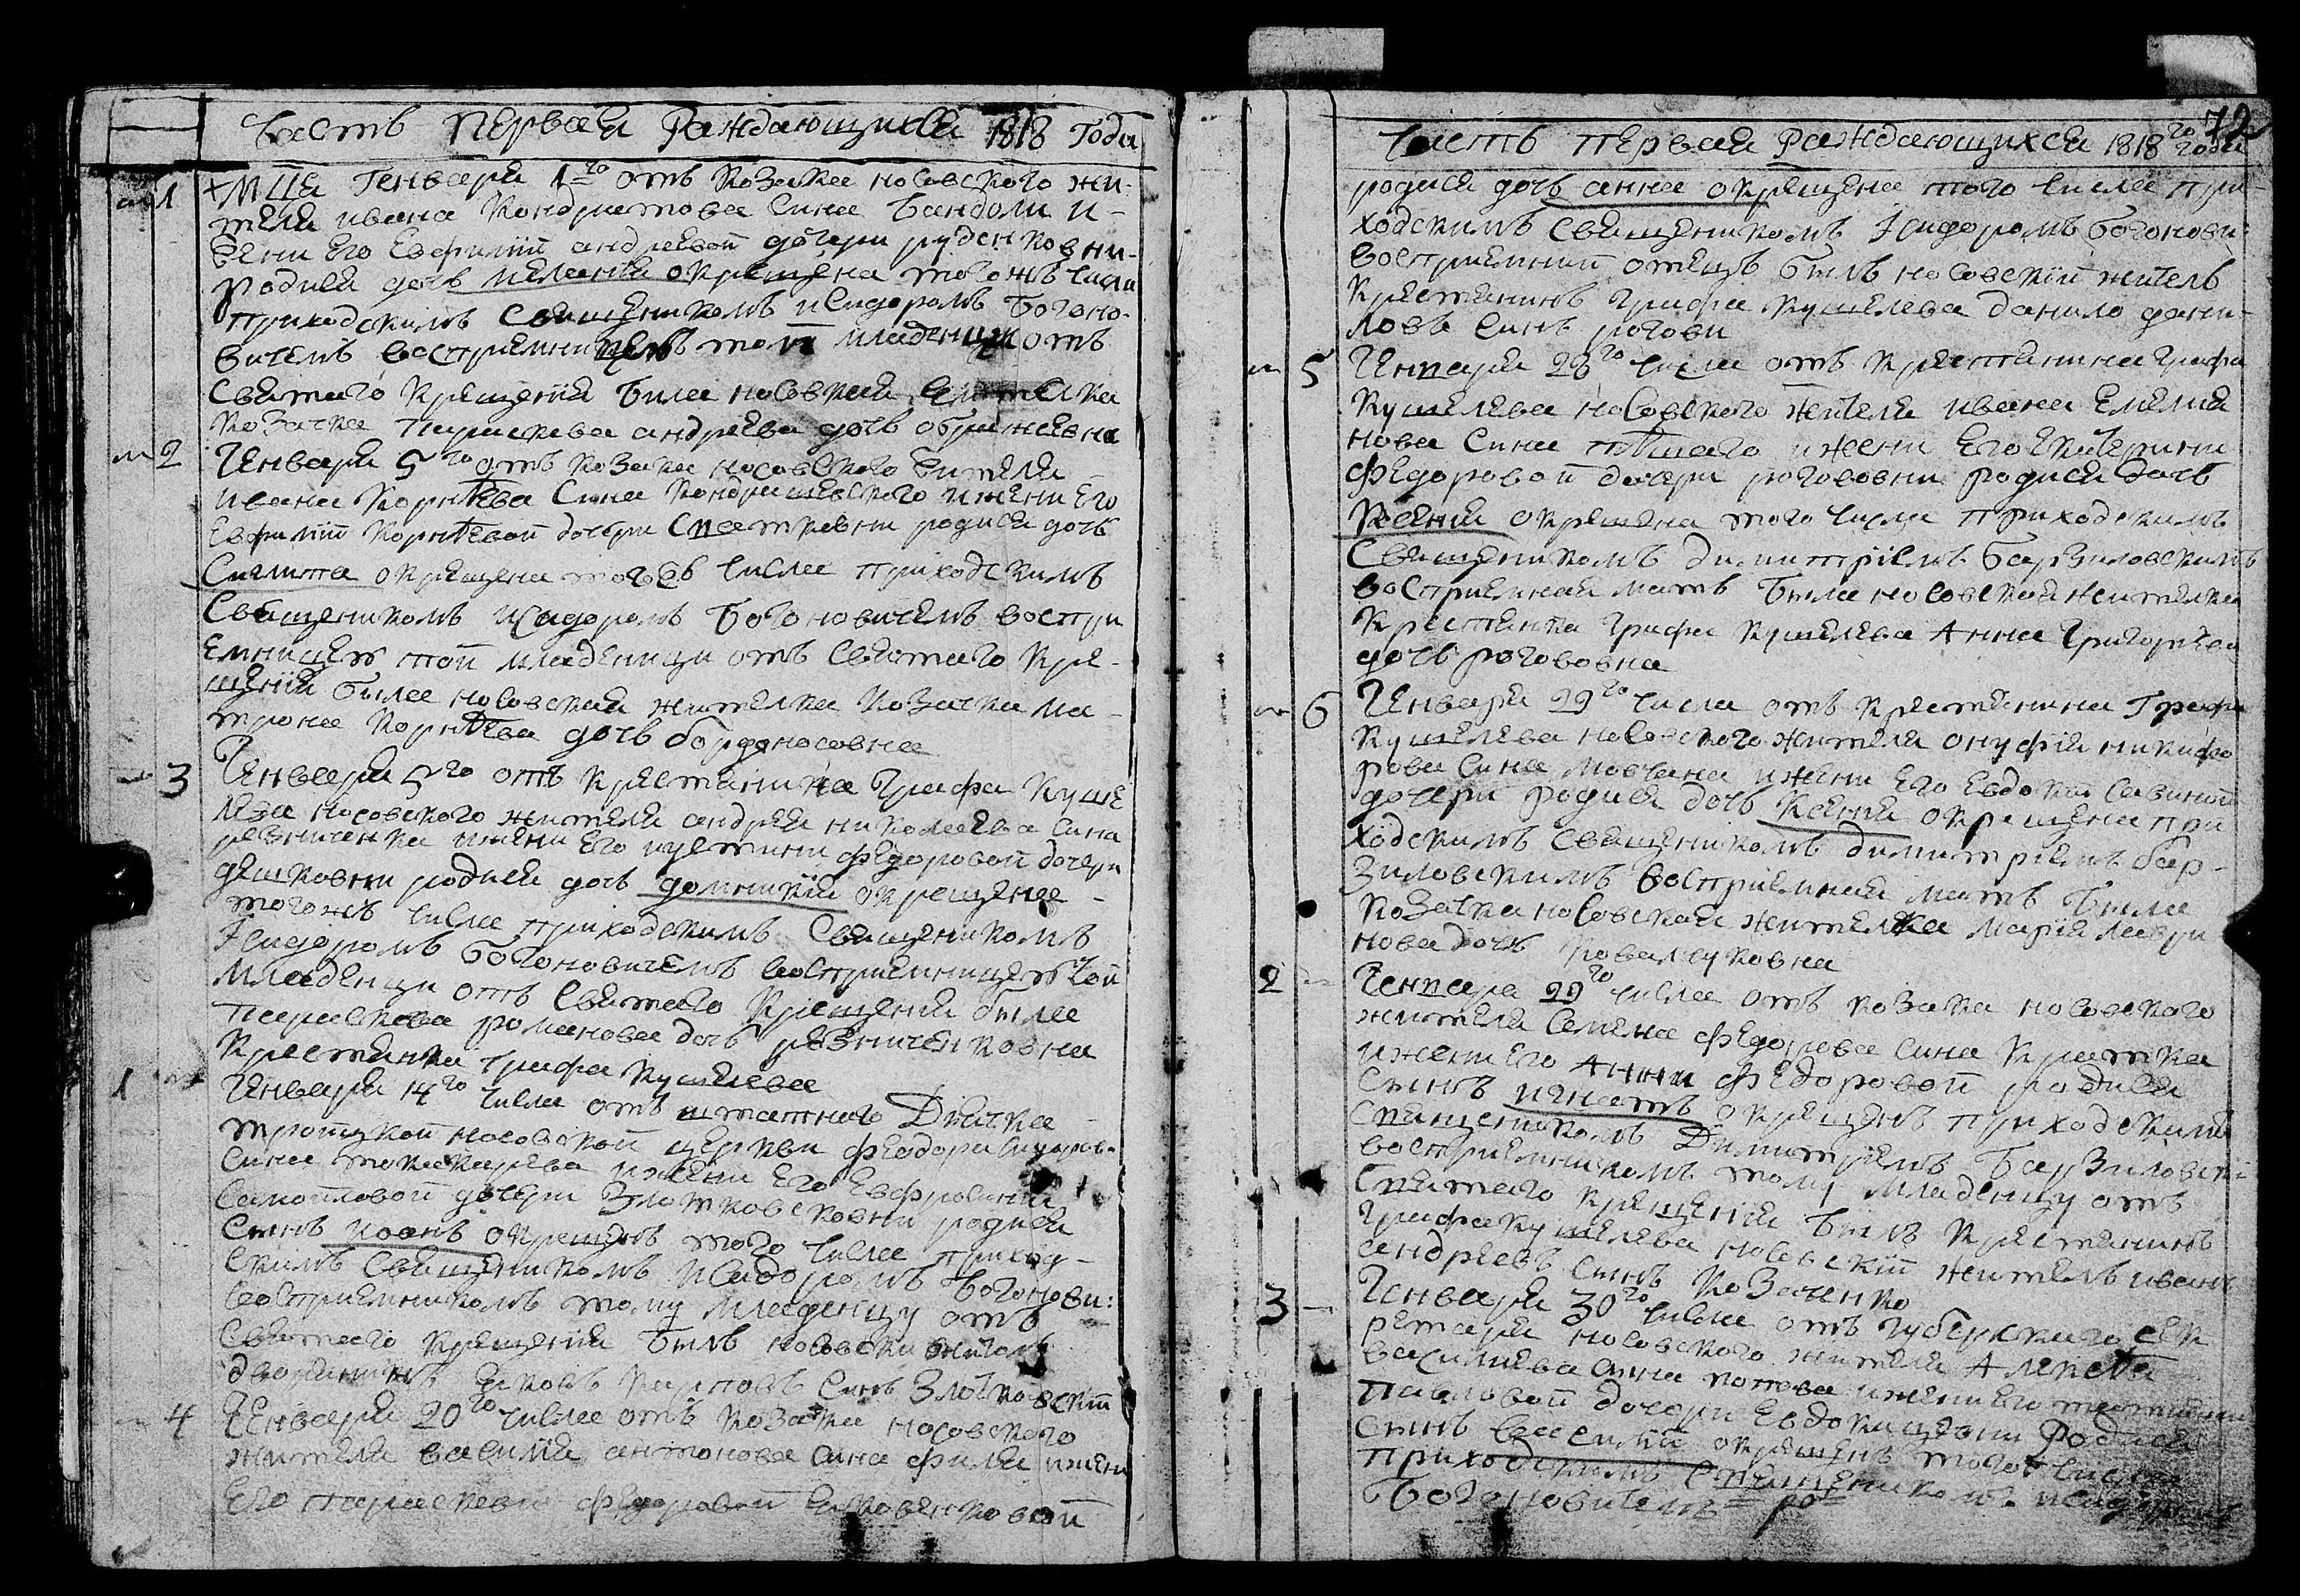 Часть первая Раждающихся 1818 Года
1 Мца Генваря 1го отъ козака носовского жи-
теля ивана Кондратова сина Бандоли и-
жени его Евфиміи андреевой дочери руденковни-
родися дочь меланія окрещена тогожъ числа
приходскимъ священикомъ исидоромъ Богоно-
вичемъ воспріемницею той младеницы отъ
святаго крещенія била носовская жителка
козачка параскева андреева дочь
2 Генваря 5го отъ козака носовского жителя
ивана Корнѣева сина Кондрашевского и жени его
Евфиміи корнѣевой дочери родися дочь
окрещена тогожъ числа приходскимъ
священикомъ исидоромъ Богоновичемъ воспри
емницею той младеницы отъ святаго кре-
щенія была носовская жителка козачка ма-
трона Корнѣева дочь бордоносовна
3 Генваря 5го отъ крестянина Графа Куше
лева носовского жителя андрея николаева сина
резниченка и жени его иустини федоровой дочери
дешковни родися дочь домникія окрещена-
тогожъ числа приходскимъ священикомъ
Ісидоромъ богоновичемъ воспріемницею той
младеници отъ святаго крещенія была
параскева романова дочь резниченковна
крестянка графа кушелева
1 Генваря 14го числа отъ штатнаго Дячка
троицкой носовской церкви феодора сидоров.
сина токарева и жени его Евфросиніи
самойловой дочери Злотковсковни родися
сынъ иоанъ окрещенъ того числа приход-
скимъ священикомъ исидоромъ Богонови:
воспріемникомъ тому младенцу отъ
святаго крещенія былъ носовски житель
дворянинъ Яковъ карповъ синъ Злотковскій
4 Генваря 20го числа отъ козака носовского
жителя василія антонова сина филя и жени
его параскевіи федоровой Яковенковой
Часть первая Раждающихся 1818го годи 72
родися дочь анна окрещена того числа при-
ходскимъ священикомъ Ісидоромъ богонови:
воспріемний отецъ былъ носовскій житель
крестянинъ графа кушелева данило дани-
ловъ синъ рогови
5 Генваря 28го числа отъ крестянина Графа
кушелева носовского жителя ивана Емелия
нова сина и жени его екатерини
федоровой дочери роговни родися дочь
Ксенія окрещена того числа приходскимъ
священикомъ димитріемъ барзиловскимъ
воспріемная мать была носовская жителка
крестянка графа кушелева Анна Григориева
дочь роговна
6 Генваря 29го числа отъ крестянина Графа
кушелева носовского жителя онуфрія никифо
рова сина мовчана и жени его евдокіи савиной
дочери родися дочь Ксенія окрещена при
ходскимъ священикомъ димитріемъ бар-
зиловскимъ воспріемная мать была
козачка носовская жителка марія лаври
нова дочь ковалчуковна
2 Генвара 29го числа отъ козака носовского
жителя семена федорова сина Кратка
и жени его Анни федоровой родися
сынъ игнатъ окрещенъ приходскимъ
священикомъ Димитріемъ Барзиловск:
воспріемникомъ тому младенцу отъ
святаго крещенія былъ крестянинъ
графа кушелева носовскій житель иванъ
андреевъ синъ козаченко
3 Генваря 30го числа отъ губернскаго сек
ретаря носовского жителя Алексѣя
василиева сина попова и жени его татияни
павловой дочери родися
сынъ василій окрещенъ того числа
приходскимъ священикомъ исидоромъ
Богоновичемъ